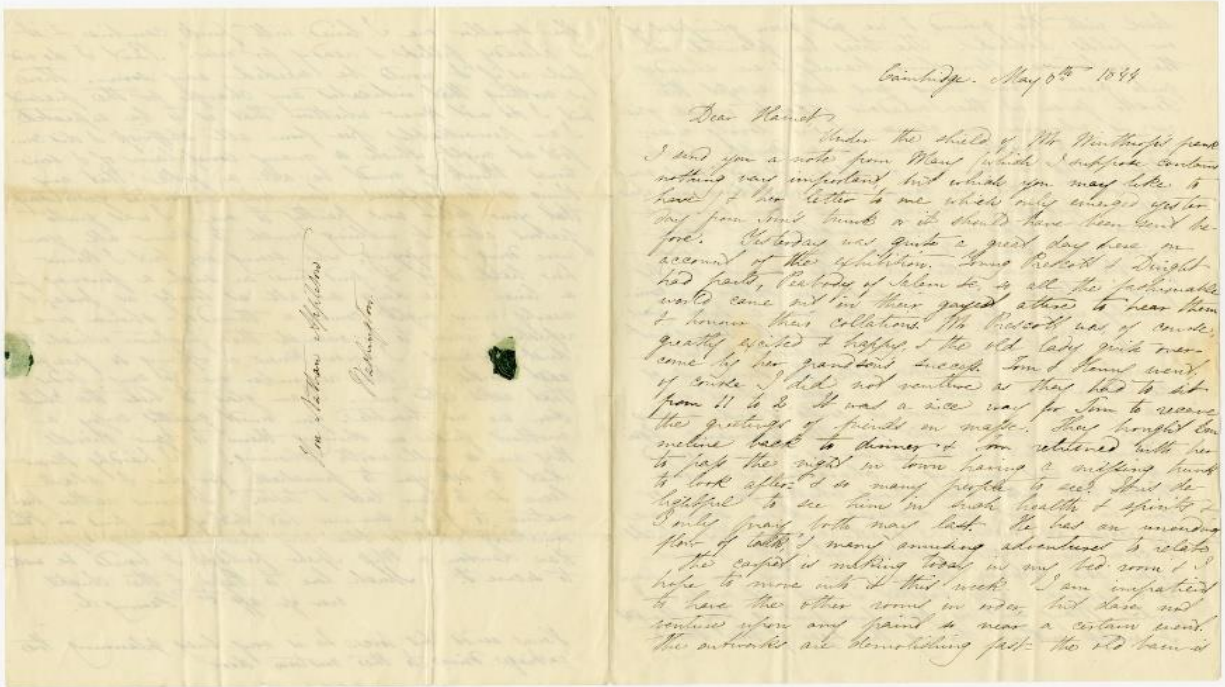 Hon. Nathan Appleton
Washington.
Cambridge. May 8th 1844
Dear Harriet,
Under the shield of Mr Winthrop's frank
I send you a note from Mary (which I suppose contains
nothing very important, but which you may like to
have) & her letter to me which only emerged yester
day from Tom's trunk or it should have been sent be-
fore. Yesterday was quite a great day here on
account of the exhibition. Young Prescott & Dwight
had parts, Peabody of Salem &c, so all the fashionable
world came out in their gayest attire to hear them
& honour their collations. Mr Prescott was of course
greatly excited & happy, & the old lady quite over-
come by her grandson's success. Tom & Henry went,
of course I did not venture as they had to sit
from 11 to 2. It was a nice way for Tom to receive
the greetings of friends en masse. They brought Em
meline back to dinner & Tom returned with her
to pass the night in town having a missing trunk
to look after & so many people to see. It is de-
lightful to see him in such health & spirits &
I only pray both may last. He has an unending
flow of talk, & many amusing adventures to relate
The carpet is making today in my bed room & I
hope to move into it this week. I am impatient
to have the other rooms in order, but dare not
venture upon any paint so near a certain event.
The outworks are demolishing fast - the old barn is